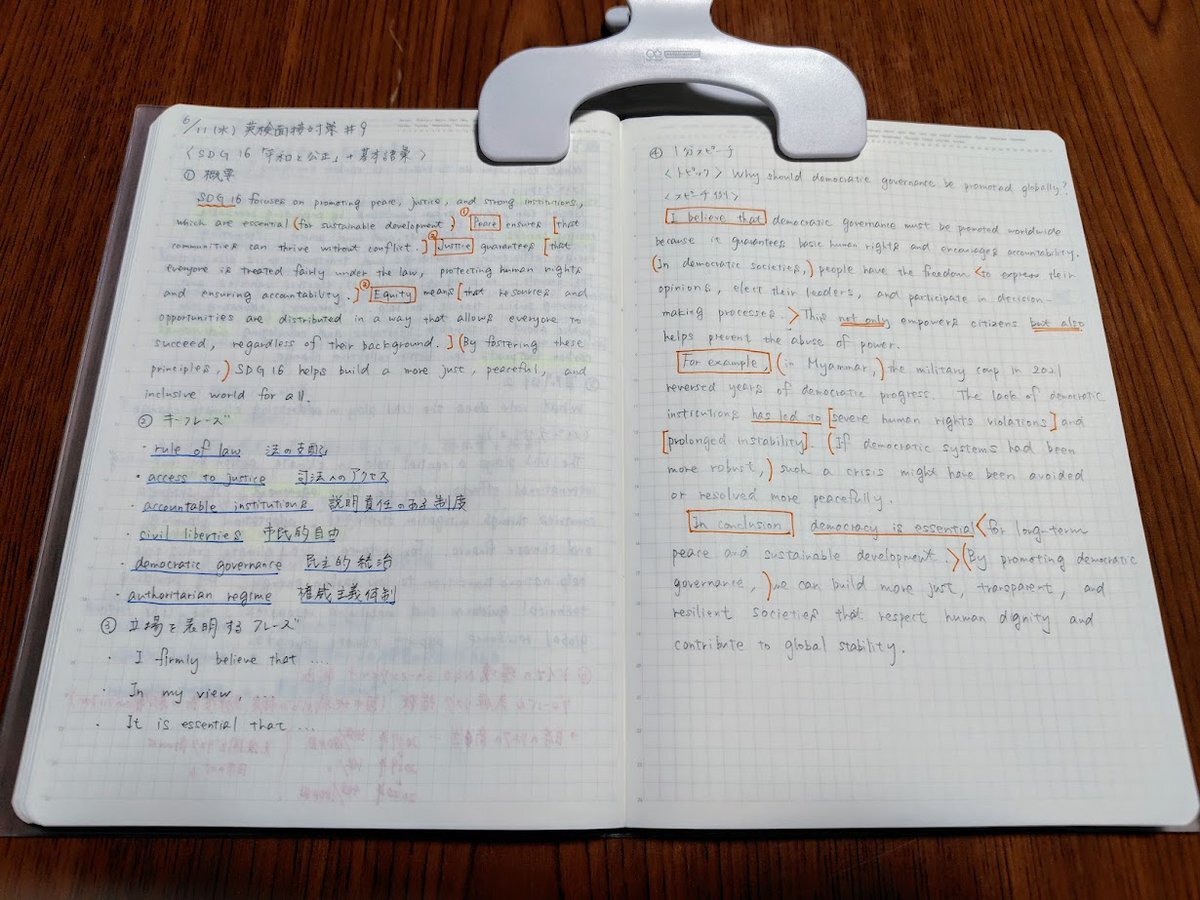 6/11(水) 英検面接対策 #9
〈SDG 16「平和と公正」+ 基本語彙〉
① 概要
SDG 16 focuses on promoting peace, justice, and strong institutions,
which are essential (for sustainable development.) ① Peace ensures [that
communities can thrive without conflict.] ② Justice guarantees [that
everyone is treated fairly under the law, protecting human rights
and ensuring accountability.] ③ Equity means [that resources and
opportunities are distributed in a way that allows everyone to
succeed, regardless of their background.] (By fostering these
principles,) SDG 16 helps build a more just, peaceful, and
inclusive world for all.
② キーフレーズ
・rule of law 法の支配
・access to justice 司法へのアクセス
・accountable institutions 説明責任のある制度
・civil liberties 市民的自由
・democratic governance 民主的統治
・authoritarian regime 権威主義体制
③ 立場を表明するフレーズ
・I firmly believe that ....
・In my view,
・It is essential that ....
④ 1分スピーチ
〈トピック〉 Why should democratic governance be promoted globally?
〈スピーチ例〉
I believe that democratic governance must be promoted worldwide
because it guarantees basic human rights and encourages accountability.
(In democratic societies,) people have the freedom <to express their
opinions, elect their leaders, and participate in decision-
making processes.> This not only empowers citizens but also
helps prevent the abuse of power.
For example, (in Myanmar,) the military coup in 2021
reversed years of democratic progress. The lack of democratic
institutions has led to [severe human rights violations] and
[prolonged instability]. (If democratic systems had been
more robust,) such a crisis might have been avoided
or resolved more peacefully.
In conclusion democracy is essential <for long-term
peace and sustainable development.> (By promoting democratic
governance,) we can build more just, transparent, and
resilient societies that respect human dignity and
contribute to global stability.